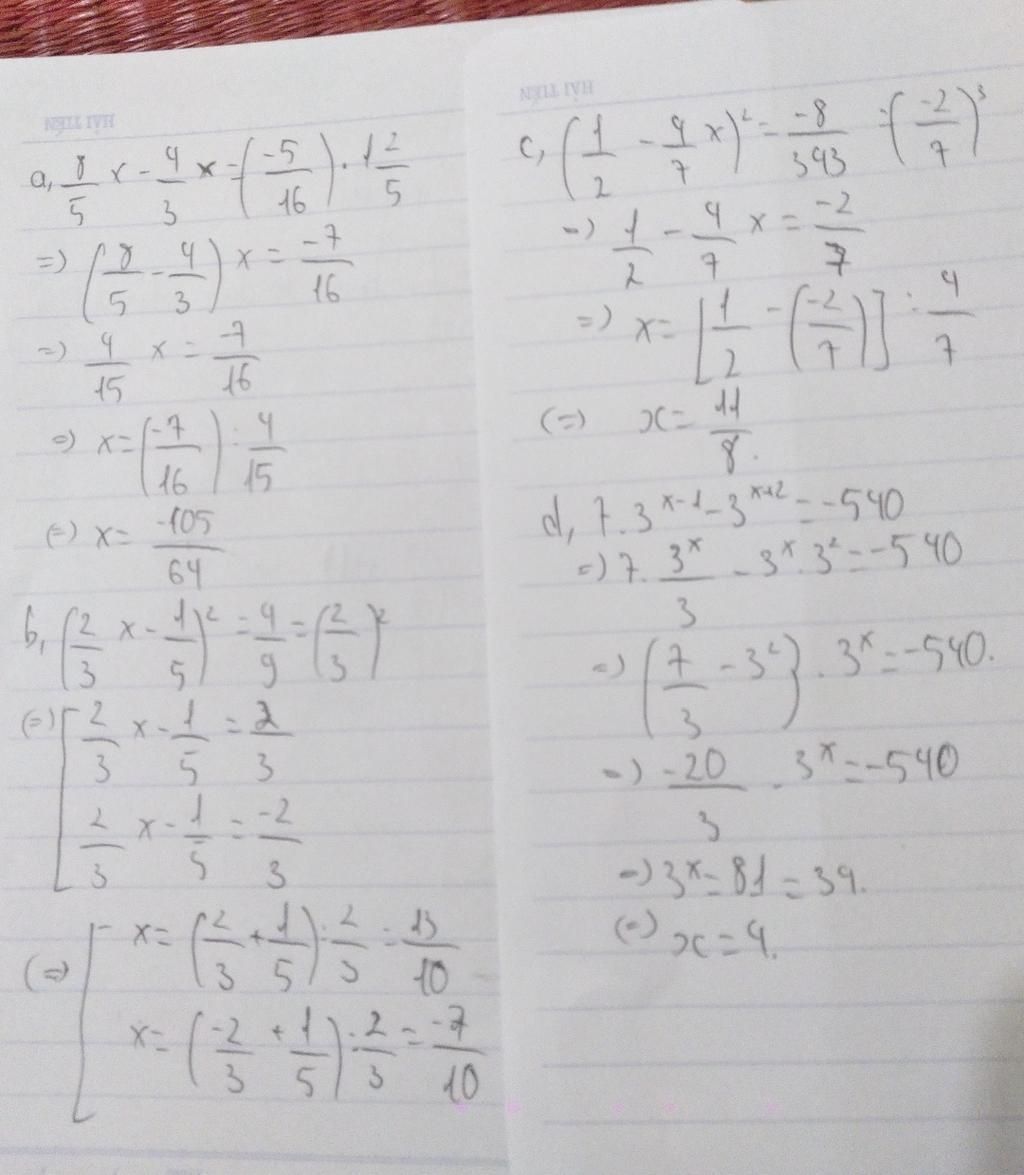 HẢI TIẾN
a, 8/5 x - 4/3 x = (-5/16) . 1 2/5
=> (8/5 - 4/3) x = -7/16
=> 4/15 x = -7/16
=> x = (-7/16) : 4/15
(=) x = -105/64
b, (2/3 x - 1/5)² = 4/9 = (2/3)²
(=) [ 2/3 x - 1/5 = 2/3
2/3 x - 1/5 = -2/3
(=> [ x = (2/3 + 1/5) : 2/3 = 13/10
x = (-2/3 + 1/5) : 2/3 = -7/10
HẢI TIẾN
c, (1/2 - 4/7 x)² = -8/343 = (-2/7)³
=> 1/2 - 4/7 x = -2/7
=> x = [1/2 - (-2/7)] : 4/7
(=> x = 11/8.
d, 7.3^(x-1) - 3^(x+2) = -540
=> 7. 3^x/3 - 3^x . 3² = -540
=> (7/3 - 3²) . 3^x = -540.
=> -20/3 . 3^x = -540
=> 3^x = 81 = 34.
(=) x = 4.